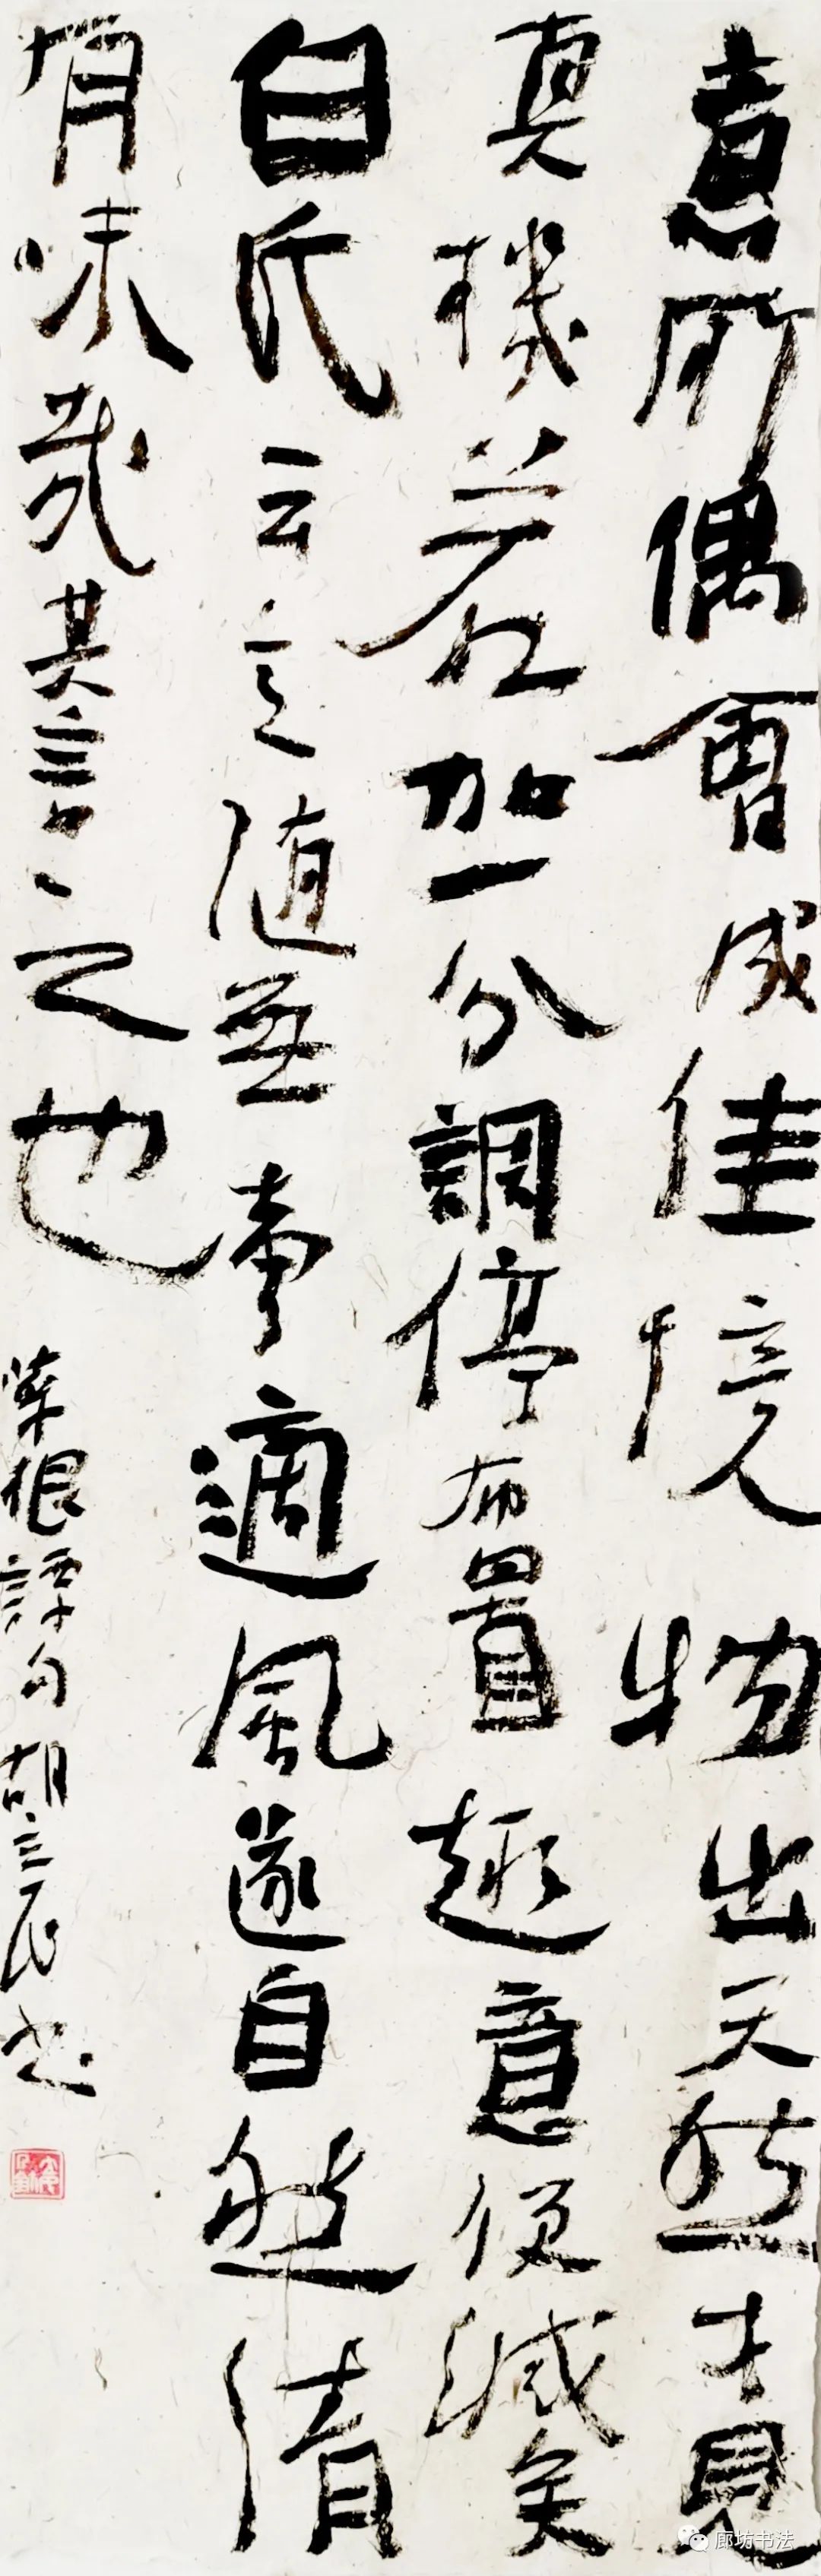 意所偶會成佳境物出天然才見
真機若加一分調停布置趣意便減矣
白氏云意随無事適風逐自然清
有味哉其言之也
菜根譚句胡立民书
廊坊书法